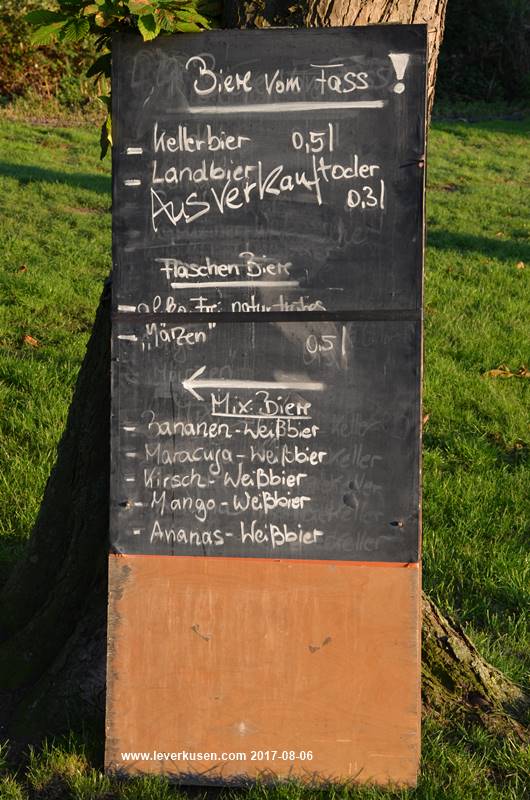 Biere vom Fass!
- Kellerbier 0,5l
- Landbier oder
Ausverkauft 0,3l
Flaschen Biere
- naturtrübes
- „Märzen" 0,5l
←
Mix. Biere
- Bananen-Weißbier
- Maracuja-Weißbier
- Kirsch-Weißbier
- Mango-Weißbier
- Ananas-Weißbier
www.leverkusen.com 2017-08-06